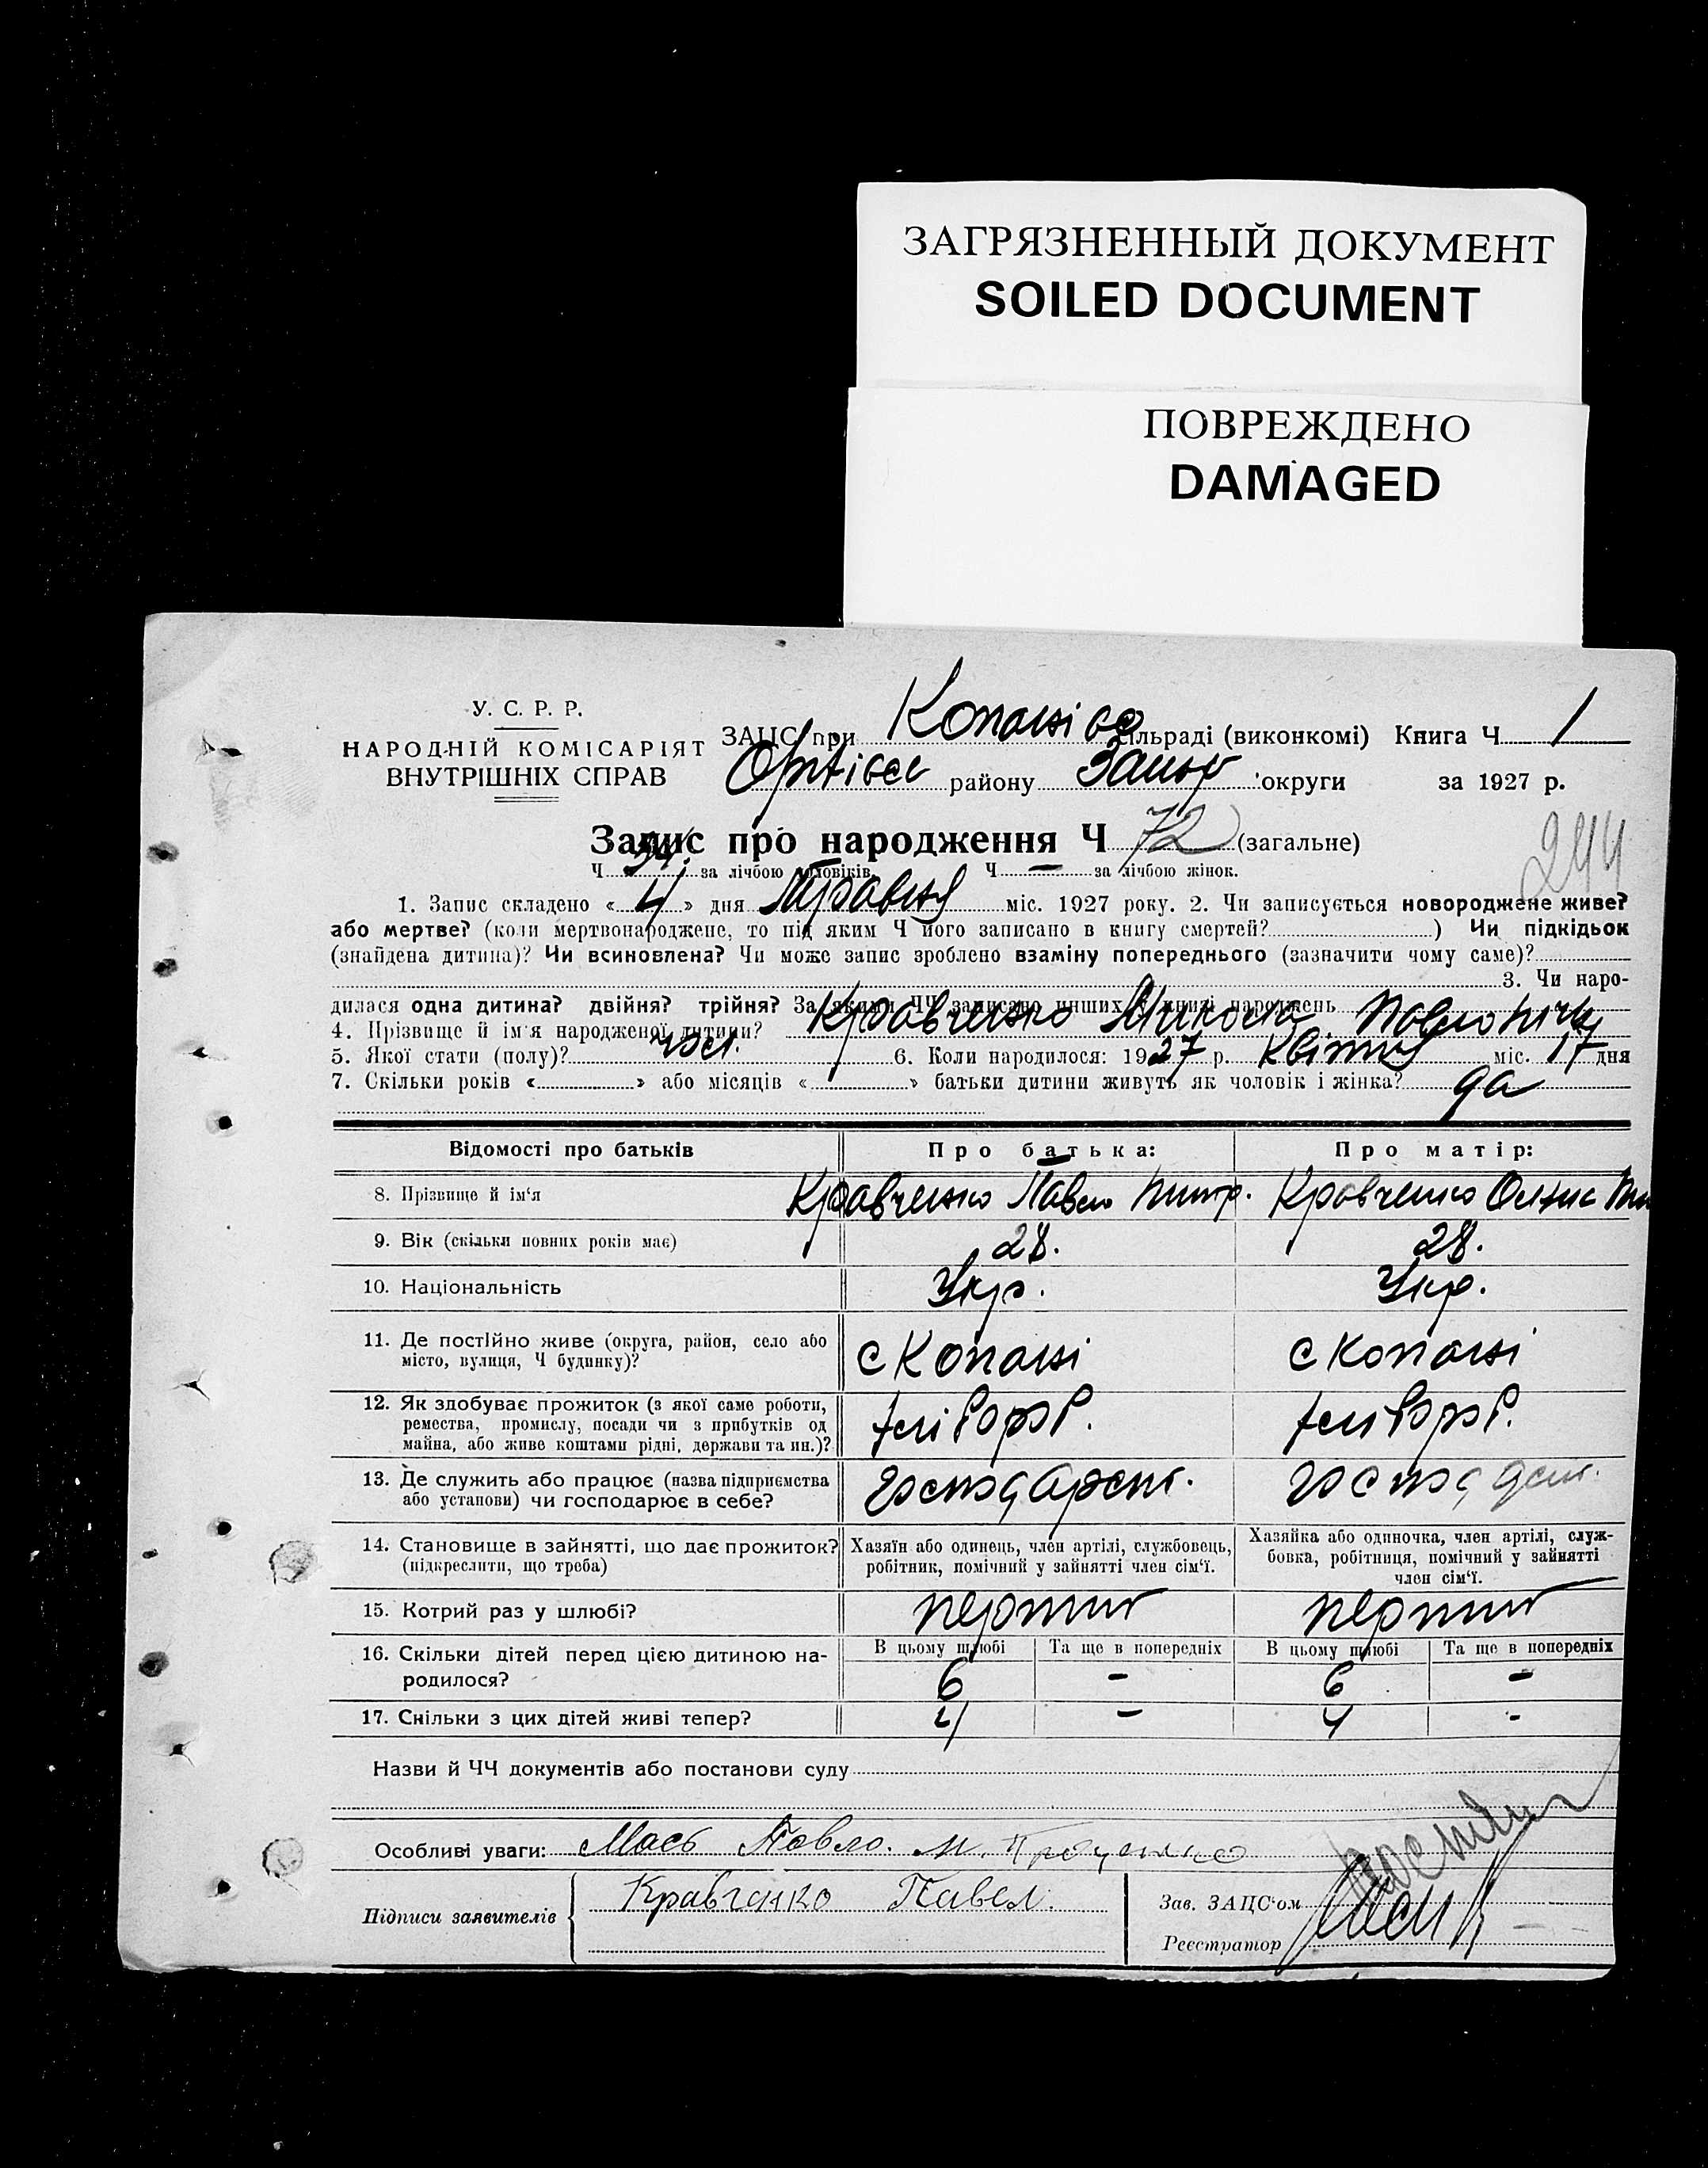 ЗАГРЯЗНЕННЫЙ ДОКУМЕНТ
SOILED DOCUMENT
ПОВРЕЖДЕНО
DAMAGED
У. С. Р. Р.
НАРОДНІЙ КОМІСАРІЯТ
ВНУТРІШНІХ СПРАВ
ЗАЦС при сільраді (виконкомі) Книга Ч 1
району округи за 1927 р.
Запис про народження Ч 72 (загальне)
Ч 34. за лічбою чоловіків Ч — за лічбою жінок.
244
1. Запис складено « 4 » дня Травня міс. 1927 року. 2. Чи записується новороджене живе?
або мертве? (коли мертвонароджене, то під яким Ч його записано в книгу смертей? ) Чи підкідьок
(знайдена дитина)? Чи всиновлена? Чи може запис зроблено взаміну попереднього (зазначити чому саме)?
3. Чи наро-
дилася одна дитина? двійня? трійня? За якими ЧЧ записано инших у книзі народжень
4. Прізвище й ім'я народженої дитини? Кравченко Микола Павлович
5. Якої стати (полу)? чол. 6. Коли народилося: 1927 р. Квітня міс. 17 дня
7. Скільки років « » або місяців « » батьки дитини живуть як чоловік і жінка? да
Відомості про батьків Про батька: Про матір:
8. Прізвище й ім'я Кравченко Павло Дмитр. Кравченко
9. Вік (скільки повних років має) 28. 28.
10. Національність Укр. Укр.
11. Де постійно живе (округа, район, село або
місто, вулиця, Ч будинку)? с Копані с Копані
12. Як здобуває прожиток (з якої саме роботи,
ремества, промислу, посади чи з прибутків од
майна, або живе коштами рідні, держави та ин.)? хлібороб. хлібороб.
13. Де служить або працює (назва підприємства
або установи) чи господарює в себе?
14. Становище в зайнятті, що дає прожиток?
(підкреслити, що треба)
Хазяїн або одинець, член артілі, службовець,
робітник, помічний у зайнятті член сім'ї.
Хазяйка або одиночка, член артілі, служ-
бовка, робітниця, помічний у зайнятті
член сім'ї.
15. Котрий раз у шлюбі? первий первий
16. Скільки дітей перед цією дитиною на-
родилося?
В цьому шлюбі Та ще в попередніх В цьому шлюбі Та ще в попередніх
6 - 6 -
17. Скільки з цих дітей живі тепер? 4 - 4 -
Назви й ЧЧ документів або постанови суду
Особливі уваги: Павло.
Підписи заявителів Кравченко Павел.
Зав. ЗАЦС'ом
Реєстратор